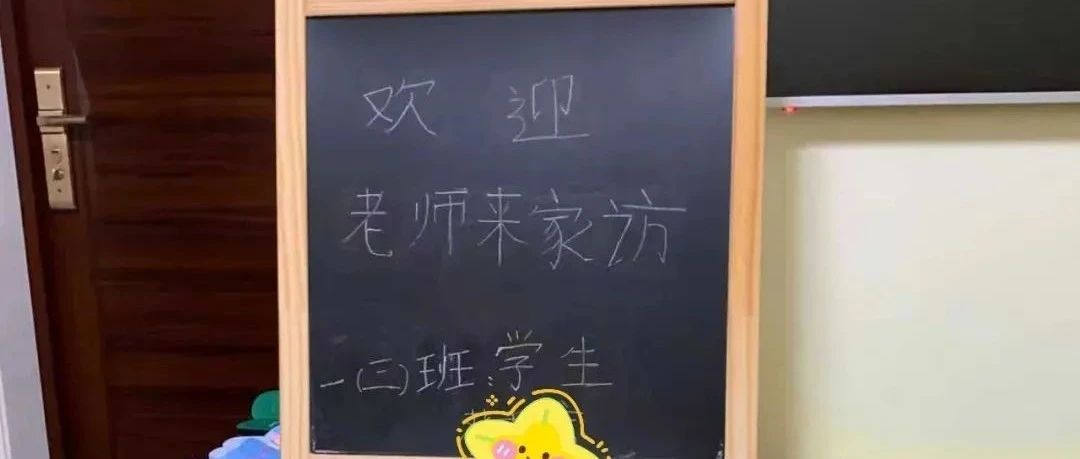 欢迎
老师来家访
一(三)班:学生